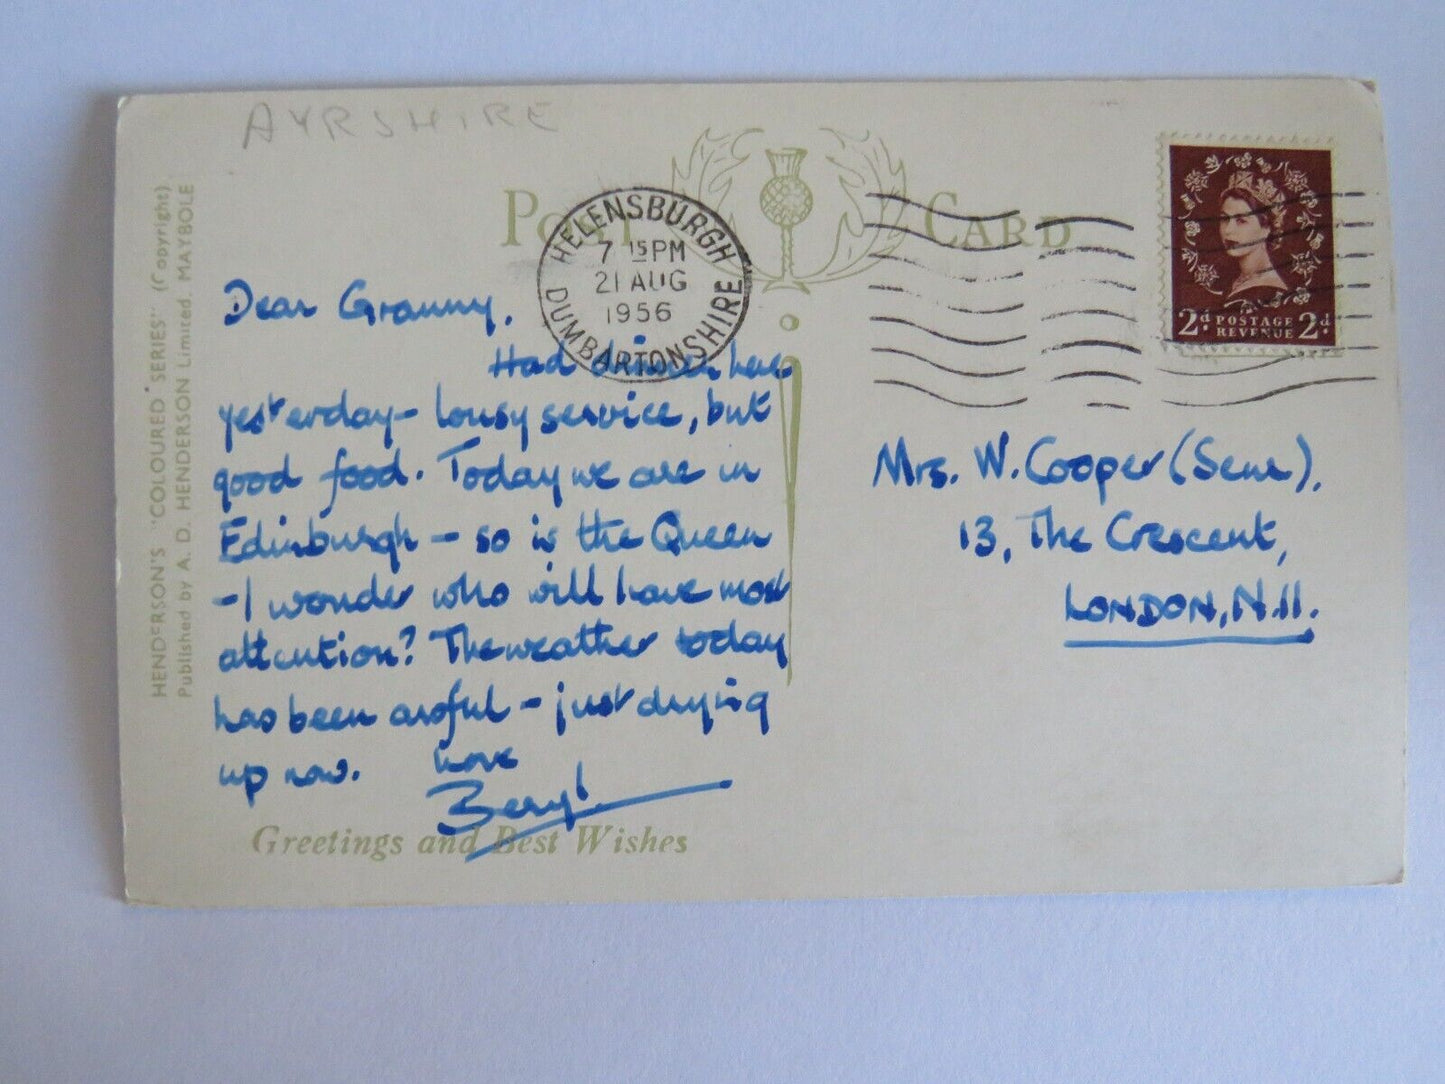 AYRSHIRE
POST CARD
HELENSBURGH
7 15 PM
21 AUG
1956
DUMBARTONSHIRE
2d. POSTAGE REVENUE 2d.
HENDERSON'S "COLOURED SERIES" (Copyright)
Published by A. D. HENDERSON Limited, MAYBOLE
Dear Granny,
Had dinner here
yesterday – lousy service, but
good food. Today we are in
Edinburgh – so is the Queen
– I wonder who will have most
attention? The weather today
has been awful – just drying
up now. Love
Beryl.
Greetings and Best Wishes
Mrs. W. Cooper (Senr),
13, The Crescent,
LONDON, N.11.